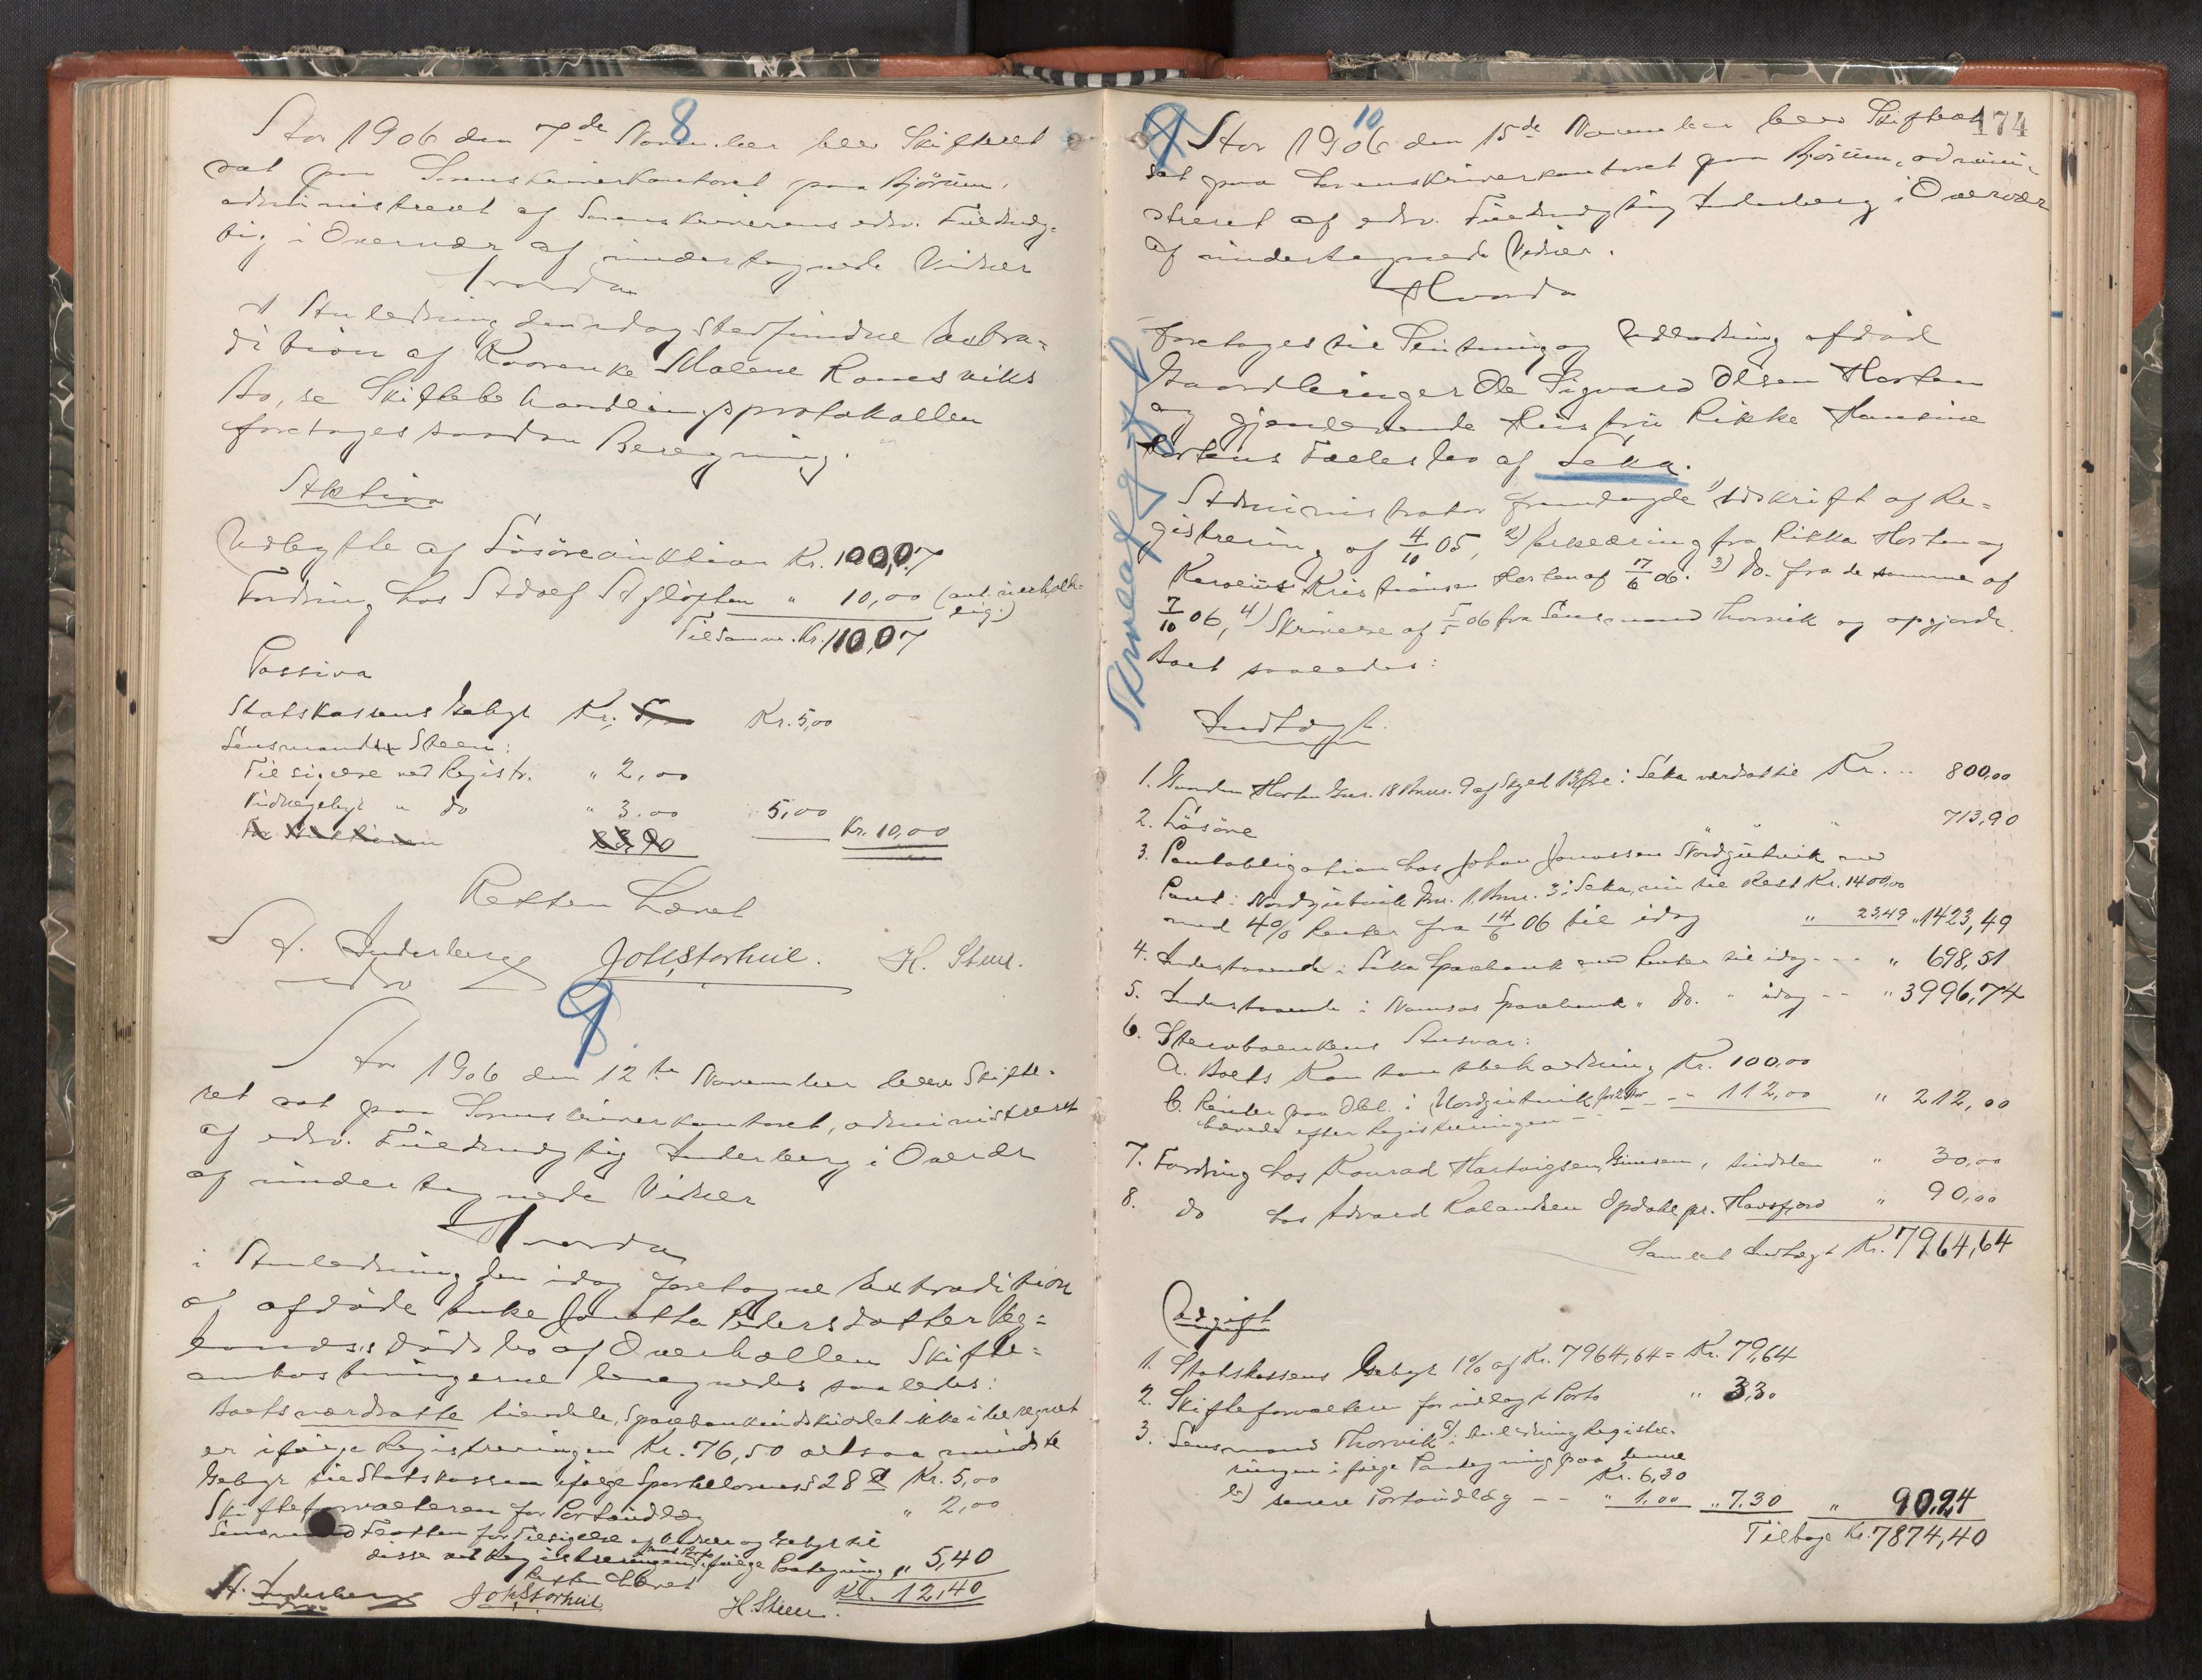 8
Aar 1906 den 7de November blev Skifteret
sat paa Sorenskriverkontoret paa Bjørum,
administreret af Sorenskriverens edsv. Fuldmæg-
tig i Overvær af undertegnede Vidner
Hvorda
i Anledning den idag stedfundne Extra-
dition af Kaarenke Malene Ramsviks
Bo, se Skiftebehandlingsprotokollen
foretages saadan Beregning.
Aktiva
Udbytte af Løsøreauktion Kr. 100,07
Fordring hos Adolf Agløften " 10,00 (ant. uerholde-
lig.)
Tilsamm. Kr. 110,07
Passiva
Statskassens Gebyr Kr. 5,00
Lensmand Steen:
Tilsigelse ved Registr. " 2,00
Vidnegebyr " do " 3,00 5,00
Kr. 10,00
Retten hævet
A. Inderberg Joh. Storhil. H. Steen.
edsv
9
Aar 1906 den 12te November blev Skifte-
ret sat paa Sorenskriverkontoret, administreret
af edsv. Fuldmægtig Inderberg i Overvær
af undertegnede Vidner
Hvorda
i Anledning den idag foretagne Extradition
af afdøde Enke Jonetta Pedersdatter Veg-
lands Dødsbo af Overhallen Skifte-
omkostningerne beregnedes saaledes:
Boets værdsatte Eiendele, Sparebankindskuddet ikke iberegnet
er ifølge Registreringen Kr. 76,50 altsaa mindste
Gebyr til Statskassen ifølge Sportellovens § 28 Kr. 5,00
Skifteforvalteren for Portoudlæg " 2,00
Lensmand Flotten for Tilsigelse af Vidner og Gebyr til
disse ved Registreringen ifølge Paategning " 5,40
Retten hævet Kr. 12,40
A. Inderberg Joh. Storhil H. Steen.
edsv
174
10
Aar 1906 den 15de November blev Skifteret
sat paa Sorenskriverkontoret paa Bjørum, admini-
streret af edsv. Fuldmægtig Inderberg i Overvær
af undertegnede Vidner.
Hvorda
foretages til Slutning og Udlodning afdød
Gaardbruger Ole Sigvard Olsen Horten
og gjenlevende Hustru Rikke Hansine
Hortens Fællesbo af Leka.
Administrator fremlagde 1) Udskrift af Re-
gistrering af 4/10 05, 2) Erklæring fra Rikka Horten og
Karolius Kristiansen Horten af 17/6 06. 3) Do. fra de samme af
7/10 06, 4) Skrivelse af 5/5 06 fra Lensmand Thorvik og opgjorde
Boet saaledes:
Indtægt.
1. Gaarden Horten Gnr. 18 Bnr. 9 af Skyld 13 Øre i Leka værdsat til Kr. .. 800,00
2. Løsøre " " " 713,90
3. Pantobligation hos Johan Jonassen Nordgutvik med
Pant i Nordgutvik Gnr. 1, Bnr. 3 i Leka, nu til Rest Kr. 1400,00
med 4% Renter fra 14/6 06 til idag " 23,49 " 1423,49
4. Indestaaende i Leka Sparebank med Renter til idag - - - " 698,51
5. Indestaaende i Namsos Sparebank " Do. " idag - - " 3996,74
6. Stervboenkens Ansvar:
a. Boets Kontantbeholdning Kr. 100,00
b. Renter paa Obl. i Nordgutvik for 2 Aar - - 112,00 " 212,00
hævede efter Registreringen - -
7. Fordring hos Konrad Hartvigsen Gimsen, Sindslen " 30,00
8. do hos Edvard Rolandsen Opdahl pr. Hovsfjord " 90,00
Samlet Indtægt Kr. 7964,64
Udgift
1. Statskassens Gebyr 1% af Kr. 7964,64 = Kr. 79,64
2. Skifteforvalteren for udlagt Porto " 3,30
3. Lensmand Thorvik a) i Anledning Registre-
ringen ifølge Paategning paa denne
Kr. 6,30
b) senere Portoudlæg - - " 1,00 " 7,30 " 90,24
Tilbage Kr. 7874,40